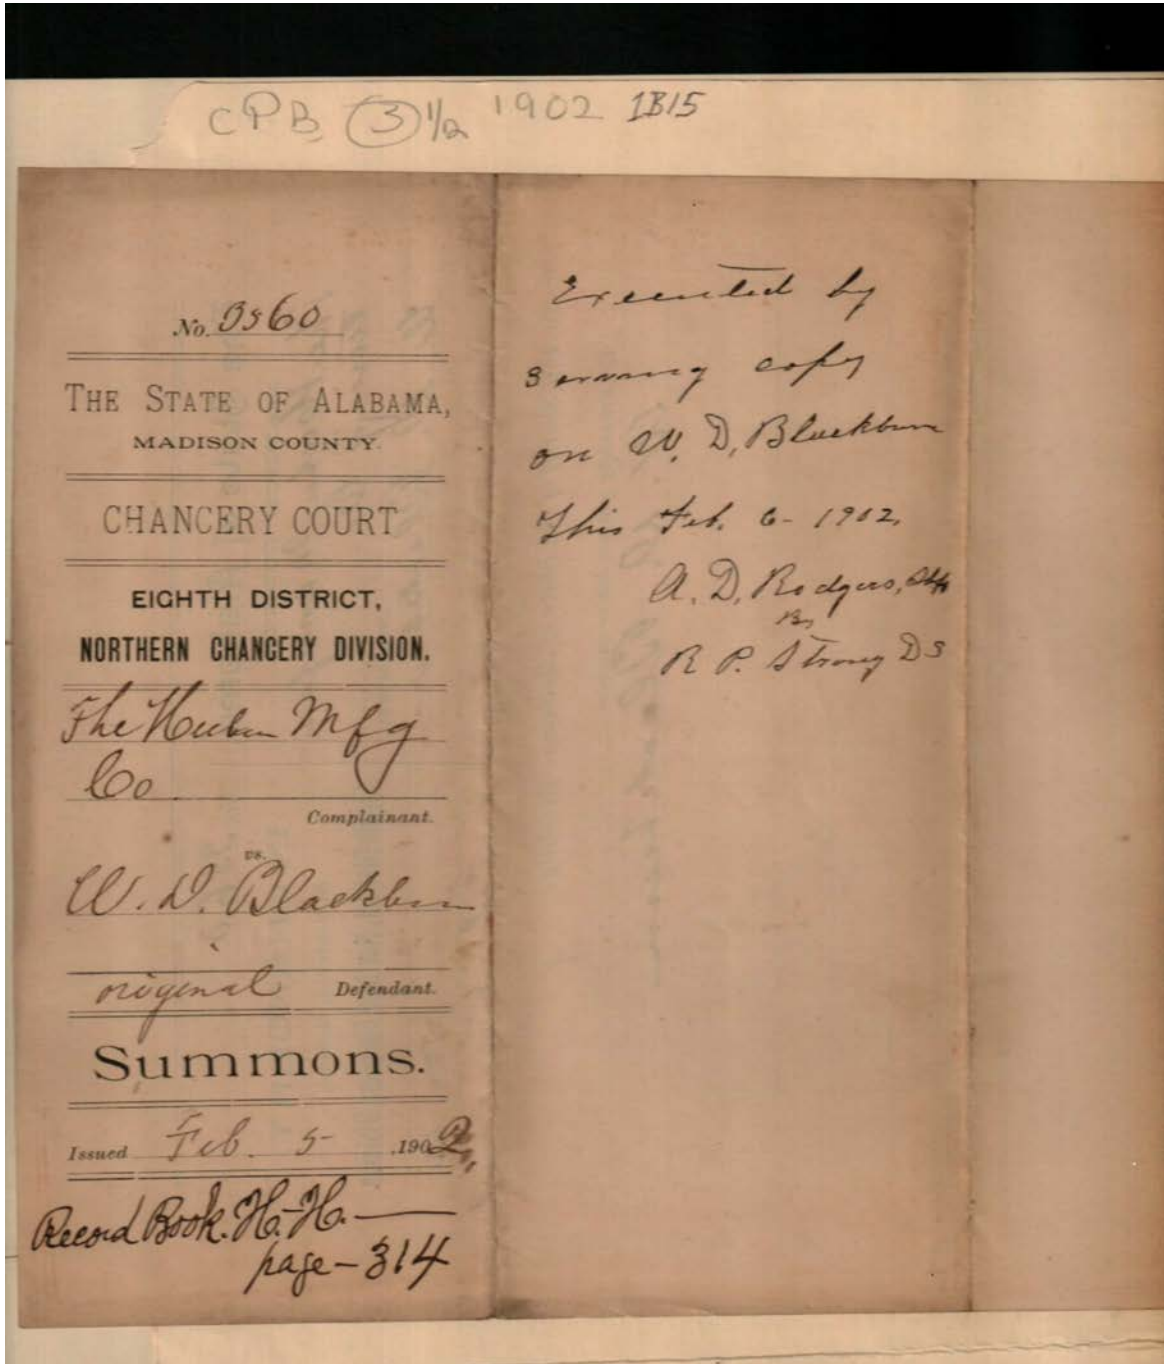 CPB (3) 1/2 1902 IB15
No. 3560
THE STATE OF ALABAMA,
MADISON COUNTY.
CHANCERY COURT
EIGHTH DISTRICT,
NORTHERN CHANCERY DIVISION.
The Huber Mfg
Co
Complainant.
vs.
W. D. Blackburn
original Defendant.
Summons.
Issued Feb. 5 1902,
Record Book. H.-H. —
page – 314
Executed by
serving copy
on W. D. Blackburn
This Feb. 6 - 1902,
A. D. Rodgers, Shff
By
R P. Strong D S